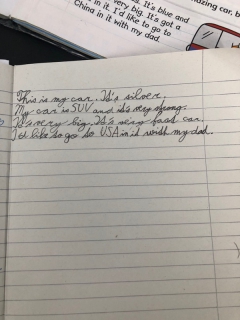 It's blue and
very big. It's got a
in it. I'd like to go to
China in it with my dad.
azing car. b
This is my car. It's silver.
My car is SUV and it's very strong.
It's very big. It's very fast car.
I'd like to go to USA in it with my dad.